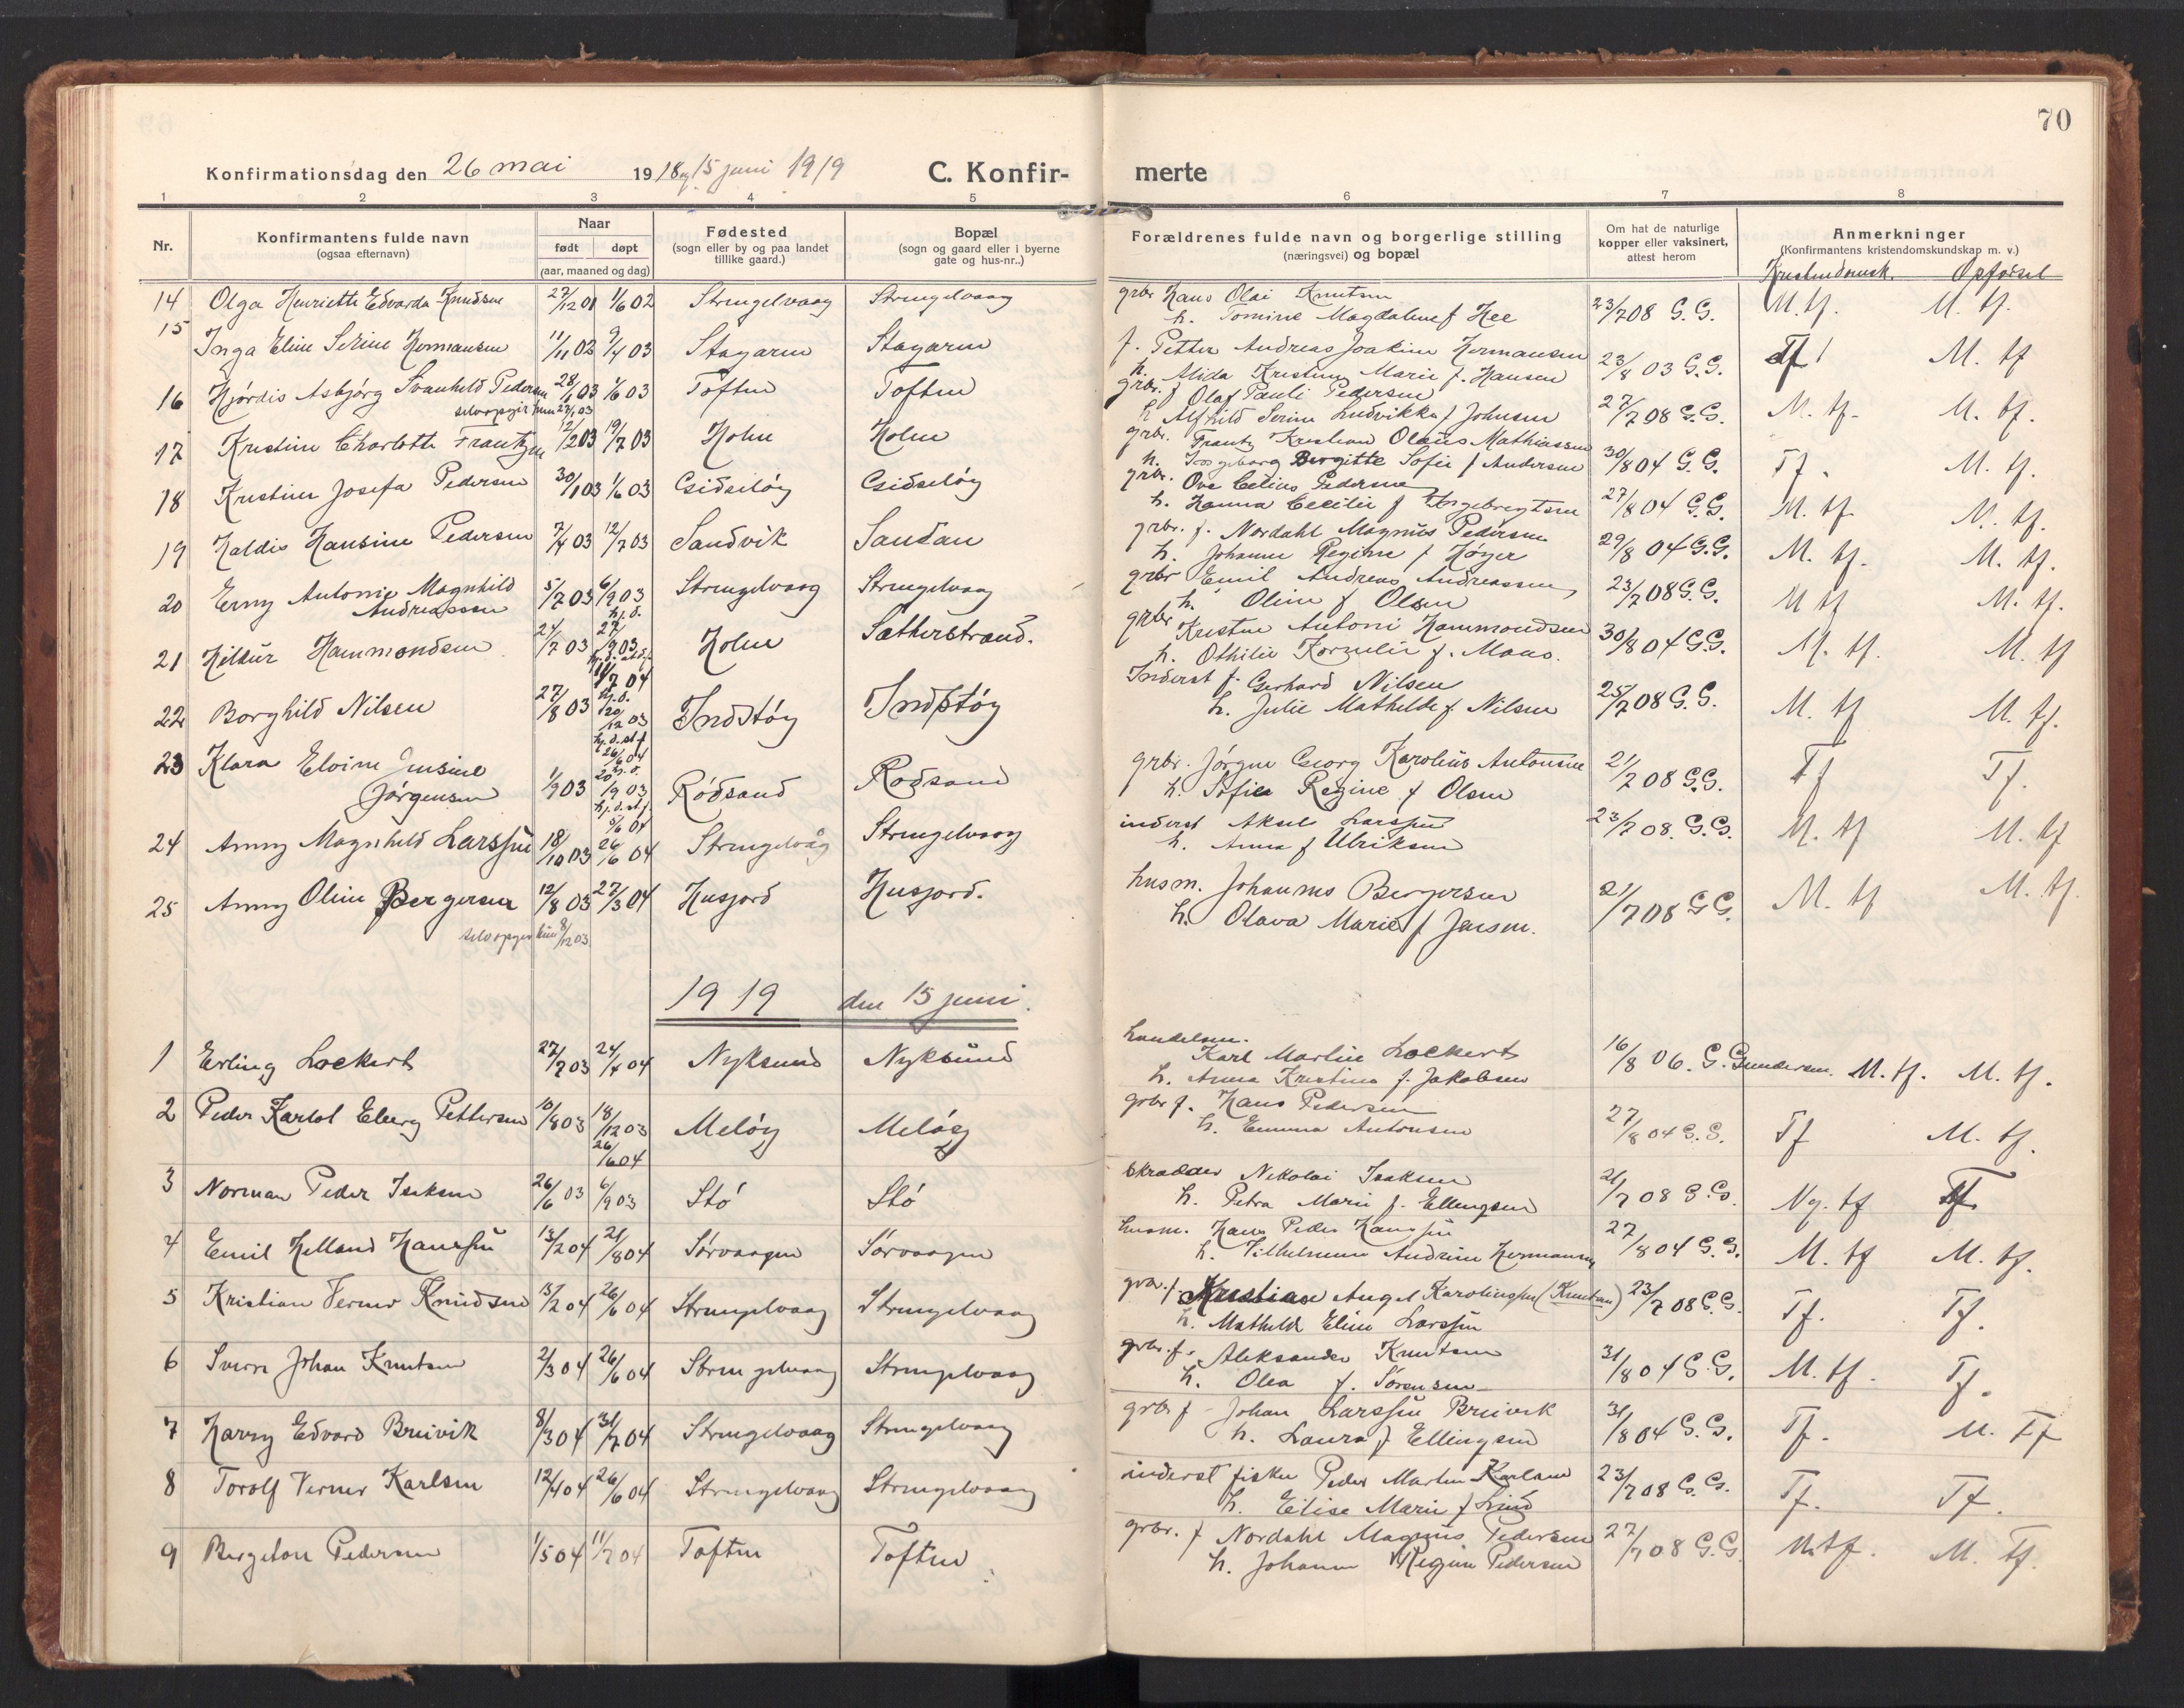 70
Konfirmationsdag den 26 mai 1918 og 15 juni 1919 C. Konfir- merte
1 2 3 4 5 6 7 8
Nr.
Konfirmantens fulde navn
(ogsaa efternavn)
Naar
født døpt
(aar, maaned og dag)
Fødested
(sogn eller by og paa landet
tillike gaard.)
Bopæl
(sogn og gaard eller i byerne
gate og hus-nr..)
Forældrenes fulde navn og borgerlige stilling
(næringsvei) og bopæl
Om hat de naturlige
kopper eller vaksinert,
attest herom
Anmerkninger
(Konfirmantens kristendomskundskap m. v.)
Kristendomsk. Opførsel
14 Olga Henriette Edvarda Knudsen 27/12 01 1/6 02 Strengelvaag Strengelvaag grbr Hans Olai Knutsen 23/7 08 G.G. M. tf. M. tf.
h. Tomine Magdalene f Hee
15 Inga Eline Serine Hermansen 11/11 02 9/4 03 Stagaren Stagaren f. Petter Andreas Joakim Hermansen 23/8 03 G.G. Tf M. tf
h. Alida Kristine Marie f. Hansen
16 Hjørdis Asbjørg Svanhild Pedersen 28/1 03 1/6 03 Toften Toften grbr. f Olaf Pauli Pedersen 27/7 08 G.G. M. tf. M. tf.
selv opgir hun 27/1 03
h Alfhild Serine Ludvikka f Johnsen
17 Kristine Charlotte Frantzen 12/2 03 19/7 03 Holm Holm grbr. Frantz Kristian Olaus Mathiassen 30/8 04 G.G. Tf. M. tf.
h. Ingeborg Bergitte Sofie f Andersen
18 Kristine Josefa Pedersen 30/1 03 1/6 03 Gsidseløy Gsidseløy grbr. Ove Celius Pedersen 27/8 04 G.G. M. tf. M. tf.
h. Hanna Cecilie f Engebregtsen
19 Haldis Hansine Pedersen 7/4 03 12/7 03 Sandvik Sandan grbr. f. Nordahl Magnus Pedersen 29/8 04 G.G. M. tf. M. tf.
h. Johanne Regine f Høyer
20 Erny Antonie Magnhild 5/7 03 6/9 03 Strengelvaag Strengelvaag grbr Emil Andreas Andreassen 23/7 08 G.G. M tf M. tf.
Andreassen hj.d.
h. Oline f Olsen
21 Hildur Hammondsen 24/7 03 27/9 03 Holm Sætherstrand. grbr Kristen Antoni Hammondsen 30/8 04 G.G. M. tf. M. tf
hj.d. st.f. 11/7 04
h. Othilie Kornelie f. Maas.
22 Borghild Nilsen 27/8 03 hj.d. 20/12 03 Indstøy Indstøy Inderst f. Gerhard Nilsen 25/7 08 G.G. M. tf M. tf.
hj.d. st f 26/6 04
h. Julie Mathilde f Nilsen
23 Klara Eloine Jensine 1/9 03 hj.d. 20/9 03 Rødsand Rødsand grbr. Jørgen Georg Karolius Antonsen 21/7 08 G.G. Tf Tf.
Jørgensen hj.d. st.f. 5/6 04
h. Sofie Regine f Olsen
24 Anny Magnhild Larssen 18/10 03 26/6 04 Strengelvåg Strengelvaag inderst Aksel Larssen 23/7 08. G.G. M. tf M. tf
h. Anna f Ulriksen
25 Anny Oline Bergersen 12/8 03 27/3 04 Husjord Husjord. husm. Johannes Bergersen 21/7 08 G.G. M. tf M. tf.
selv opgir hun 8/12 03
h. Olava Marie f Jensen.
1919 den 15 juni.
1 Erling Lockert 27/7 03 24/4 04 Nyksund Nyksund handelsm. Karl Martin Lockert 16/8 06. G. Gundersen. M. tf. M. tf.
h. Anna Kristine f. Jakobsen
2 Peder Karlot Elberg Pettersen 10/8 03 18/12 03 Meløy Meløy grbr f. Hans Pedersen 27/8 04 G.G. Tf M. tf.
26/6 04
h. Emma Antonsen
3 Norman Peder Isaksen 26/6 03 6/9 03 Stø Stø skrædder Nikolai Isaksen 21/7 08 G.G. Ng. tf Tf
h. Petra Marie f. Ellingsen
4 Emil Helland Hanssen 13/2 04 21/8 04 Sørvaagen Sørvaagen husm. Hans Peder Hanssen 27/8 04 G.G. M. tf M. tf.
h. Vilhelmine Andrine Hermansen
5 Kristian Verner Knudsen 15/2 04 26/6 04 Strengelvaag Strengelvaag grbr. f Kristian Angel Karoliussen (Knutsen) 23/7 08 G.G. Tf. Tf.
h. Mathilde Eline Larssen
6 Sverre Johan Knutsen 2/3 04 26/6 04 Strengelvaag Strengelvaag grbr. f. Aleksander Knutsen 31/8 04 G.G. M. tf. Tf.
h. Olea f. Sørensen
7 Harry Edvard Breivik 8/3 04 31/7 04 Strengelvaag Strengelvaag grbr f Johan Larssen Breivik 31/8 04 G.G. Tf. M. Tf
h. Laura f Ellingsen
8 Torolf Verner Karlsen 12/4 04 26/6 04 Strengelvaag Strengelvaag inderst fisker Peder Martin Karlsen 23/7 08 G.G. Tf. Tf.
h. Elise Marie f Lind
9 Bergeton Pedersen 1/5 04 11/7 04 Toften Toften grbr. f Nordahl Magnus Pedersen 27/7 08 G.G. M. tf. M. Tf.
h. Johanne Regine Pedersen